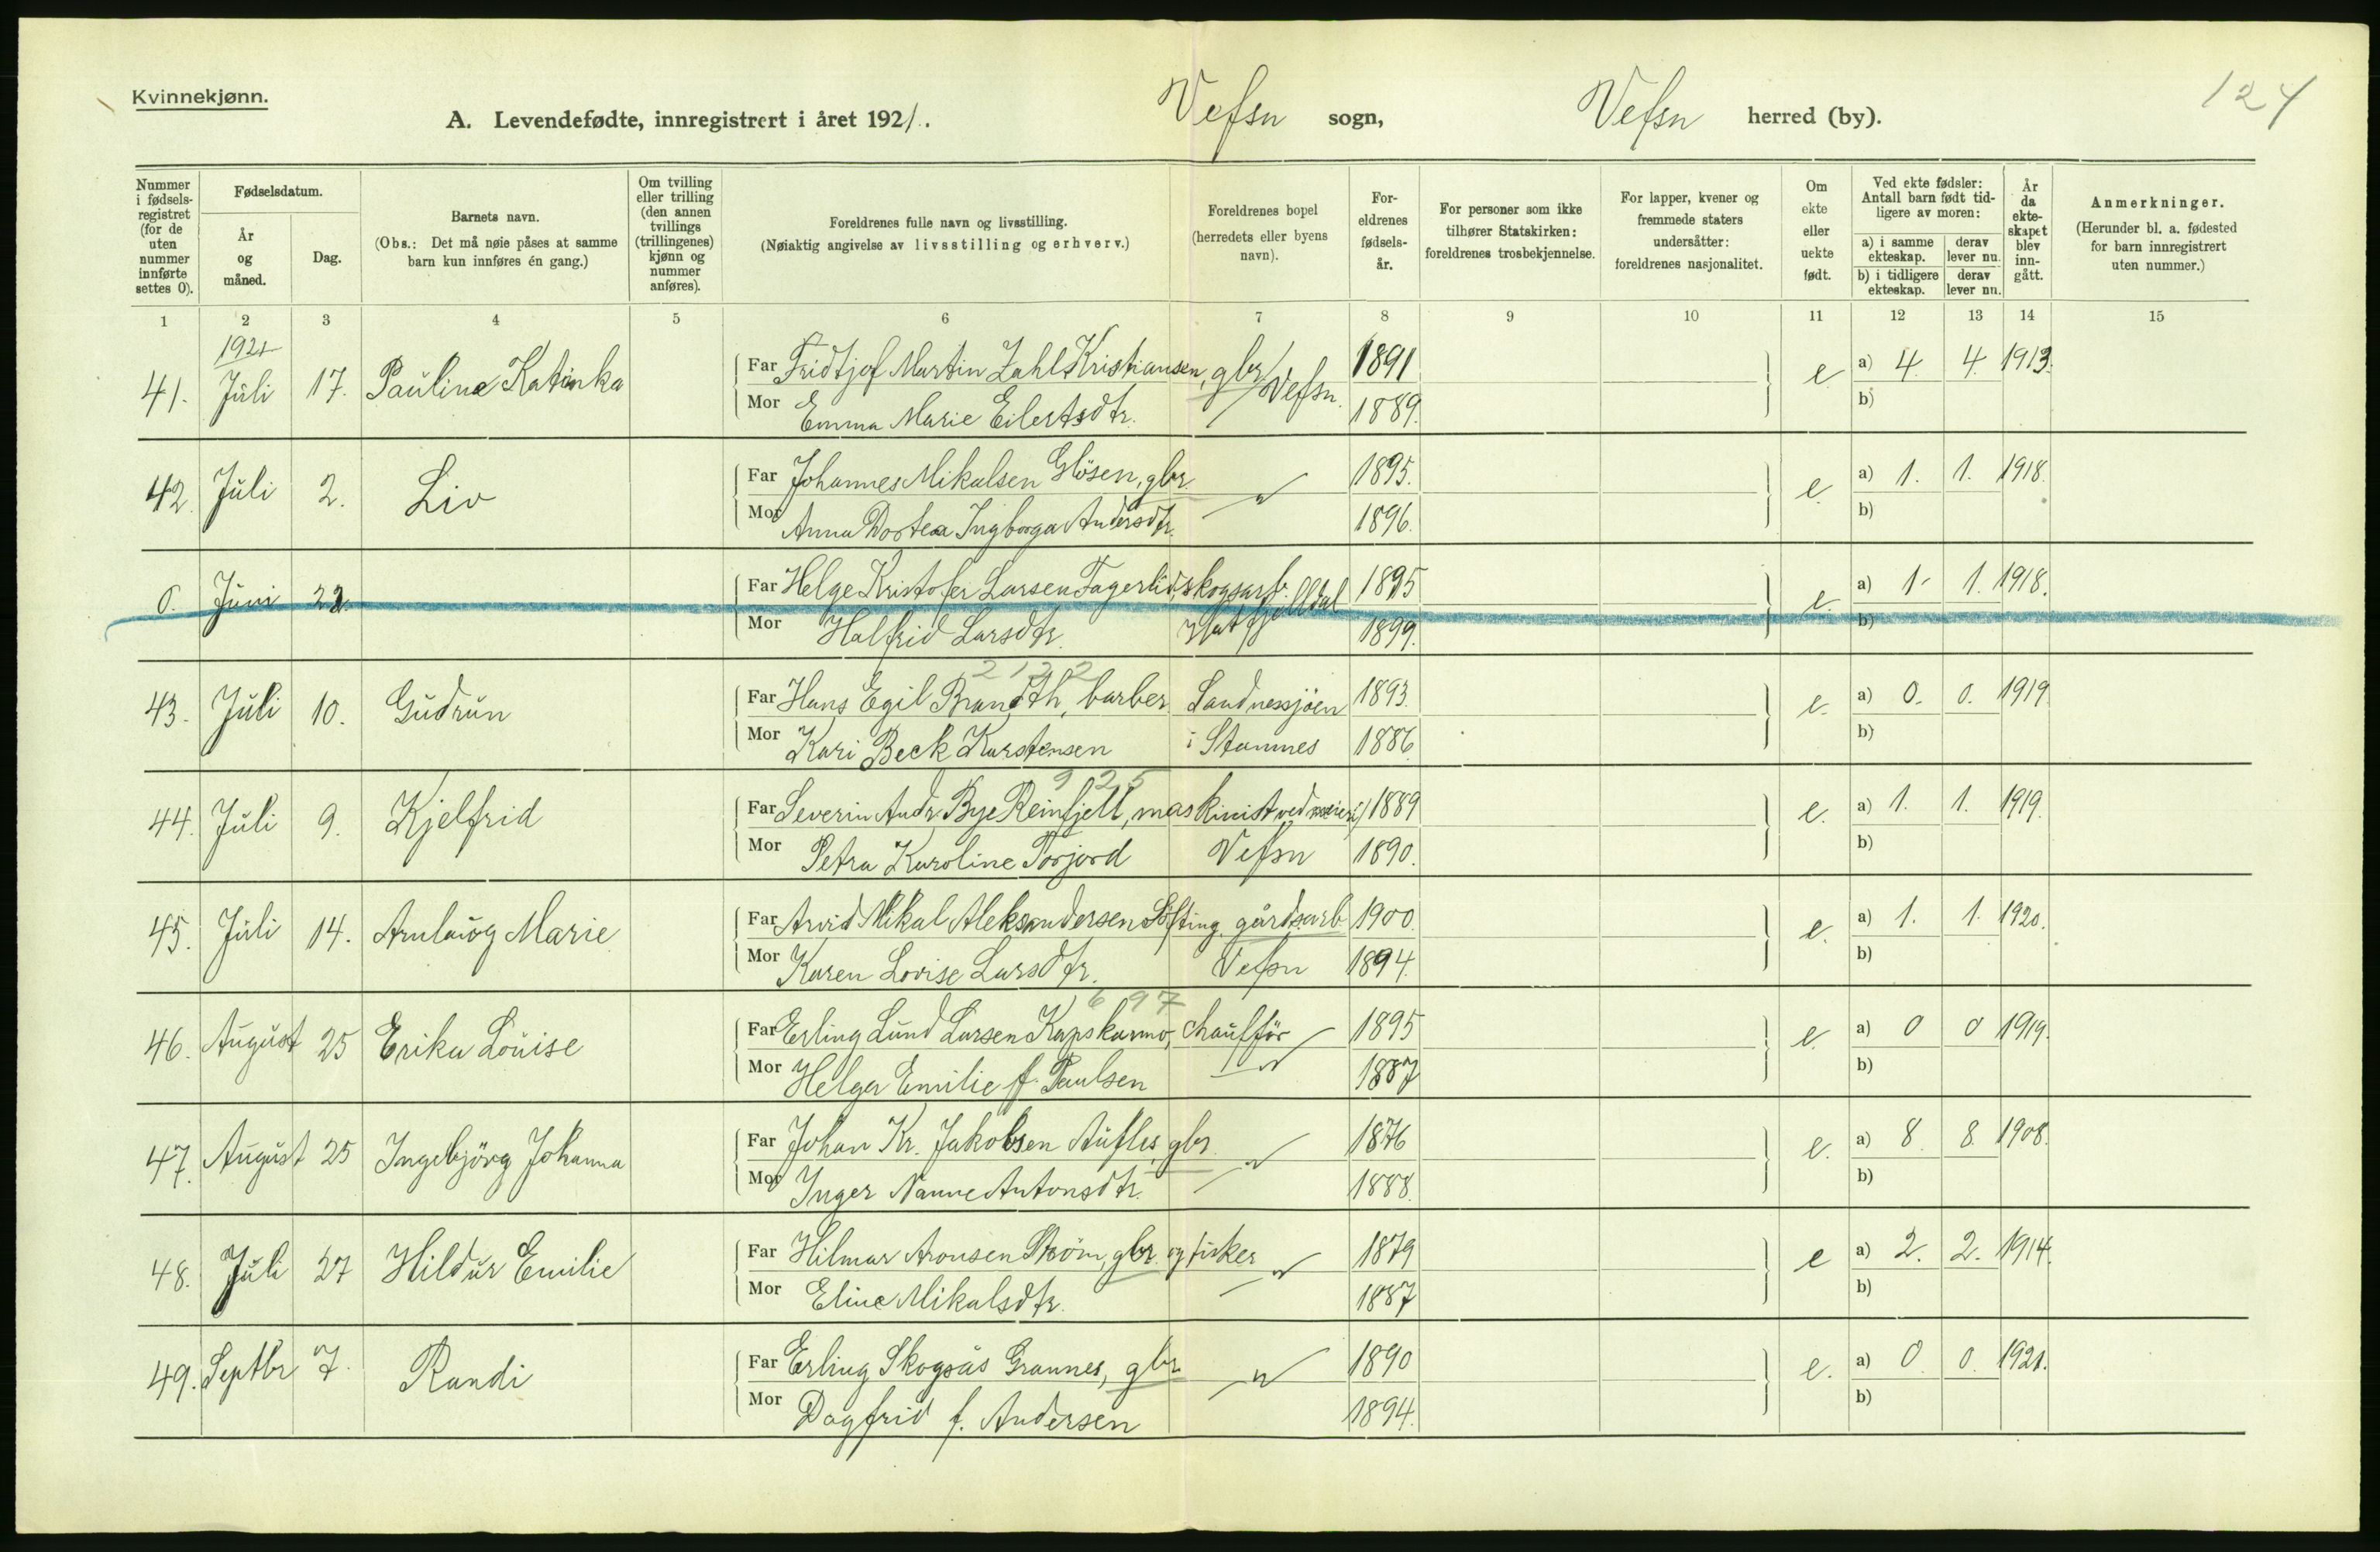 Kvinnekjønn.
124
A. Levendefødte, innregistrert i året 1921. Vefsn sogn, Vefsn herred (by).
Nummer i fødsels-registret (for de uten nummer innførte settes 0).
Fødselsdatum.
År og måned.
Dag.
Barnets navn.
(Obs.: Det må nøie påses at samme barn kun innføres én gang.)
Om tvilling eller trilling (den annen tvillings (trillingenes) kjønn og nummer anføres).
Foreldrenes fulle navn og livsstilling.
(Nøiaktig angivelse av livsstilling og erhverv.)
Foreldrenes bopel (herredets eller byens navn).
For-eldrenes fødsels-år.
For personer som ikke tilhører Statskirken: foreldrenes trosbekjennelse.
For lapper, kvener og fremmede staters undersåtter: foreldrenes nasjonalitet.
Om ekte eller uekte født.
Ved ekte fødsler: Antall barn født tid-ligere av moren:
a) i samme ekteskap. derav lever nu.
b) i tidligere ekteskap. derav lever nu.
År da ekte-skapet blev inn-gått.
Anmerkninger.
(Herunder bl. a. fødested for barn innregistrert uten nummer.)
1 2 3 4 5 6 7 8 9 10 11 12 13 14 15
1921
41. Juli 17. Pauline Katinka Far Fridtjof Martin Zahl Kristiansen, gbr. Vefsn. 1891 e a) 4 4. 1913.
Mor Emma Marie Eilertsdtr. 1889. b)
42. Juli 2. Liv Far Johannes Mikalsen Glösen, gbr. " 1895. e. a) 1. 1. 1918.
Mor Anna Dortea Ingborga Andersdtr. 1896. b)
0. Juni 22. Far Helge Kristofer Larsen Fagerlid, skogsarb. 1895 e. a) 1 1. 1918.
Mor Halfrid Larsdtr. Hatfjelldal 1899. b)
2122
43. Juli 10. Gudrun Far Hans Egil Brandth, barber Sandnessjöen 1893. e. a) 0. 0. 1919
Mor Kari Beck Karstensen i Stamnes 1886 b)
925
44. Juli 9. Kjelfrid Far Severin Andr. Bye Reinfjell, maskinist ved meieri 1889 e. a) 1. 1. 1919.
Mor Petra Karoline Forjord Vefsn 1890. b)
45. Juli 14. Arnlaug Marie Far Arvid Mikal Aleksandersen Söfting, gårdsarb 1900. e. a) 1. 1. 1920.
Mor Karen Lovise Larsdtr. Vefsn 1894. b)
697
46. August 25 Erika Louise Far Erling Lund Larsen Kapskarmo, chaufför 1895 e. a) 0 0 1919.
Mor Helga Emilie f. Paulsen " 1887 b)
47. August 25 Ingebjörg Johanna Far Johan Kr. Jakobsen Aufles, gbr. " 1876 e. a) 8. 8. 1908.
Mor Inger Nanne Antonsdtr. 1888. b)
48. Juli 27 Hildur Emilie Far Hilmar Aronsen Ström, gbr. og fisker " 1879 e a) 2. 2. 1914.
Mor Eline Mikalsdtr. 1887 b)
49. Septbr 7. Randi Far Erling Skogsås Grannes, gbr " 1890 e. a) 0. 0. 1921.
Mor Dagfrid f. Andersen 1894. b)